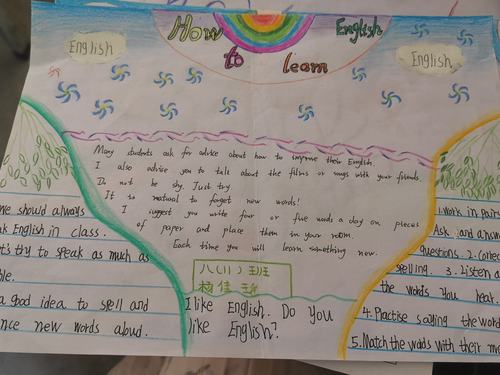 How to learn English
English
English
Many students ask for advice about how to improve their English.
I also advise you to talk about the films or songs with your friends.
Do not be shy. Just try
It is natural to forget new words!
I suggest you write four or five words a day on pieces
of paper and place them in your room.
Each time you will learn something new.
八(11)班
I like English. Do you
like English?
we should always
English in class.
try to speak as much as
a good idea to spell and
new words aloud.
work in pairs
Ask and
questions. 2.
spelling. 3. Listen
the words you hear.
4. Practise saying the word
5. Match the words with their